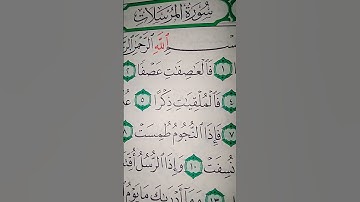 سُورَةُ الْمُرْسَلَاتِ
ـسْمِ اللَّهِ الرَّحْمَٰنِ الرَّ
١ فَالْعَاصِفَاتِ عَصْفًا ٢
٤ فَالْمُلْقِيَاتِ ذِكْرًا ٥ عُذْ
٧ فَإِذَا النُّجُومُ طُمِسَتْ ٨
نُسِفَتْ ١٠ وَإِذَا الرُّسُلُ أُقِّتَ
١٣ وَمَا أَدْرَىٰكَ مَا يَوْمُ ا